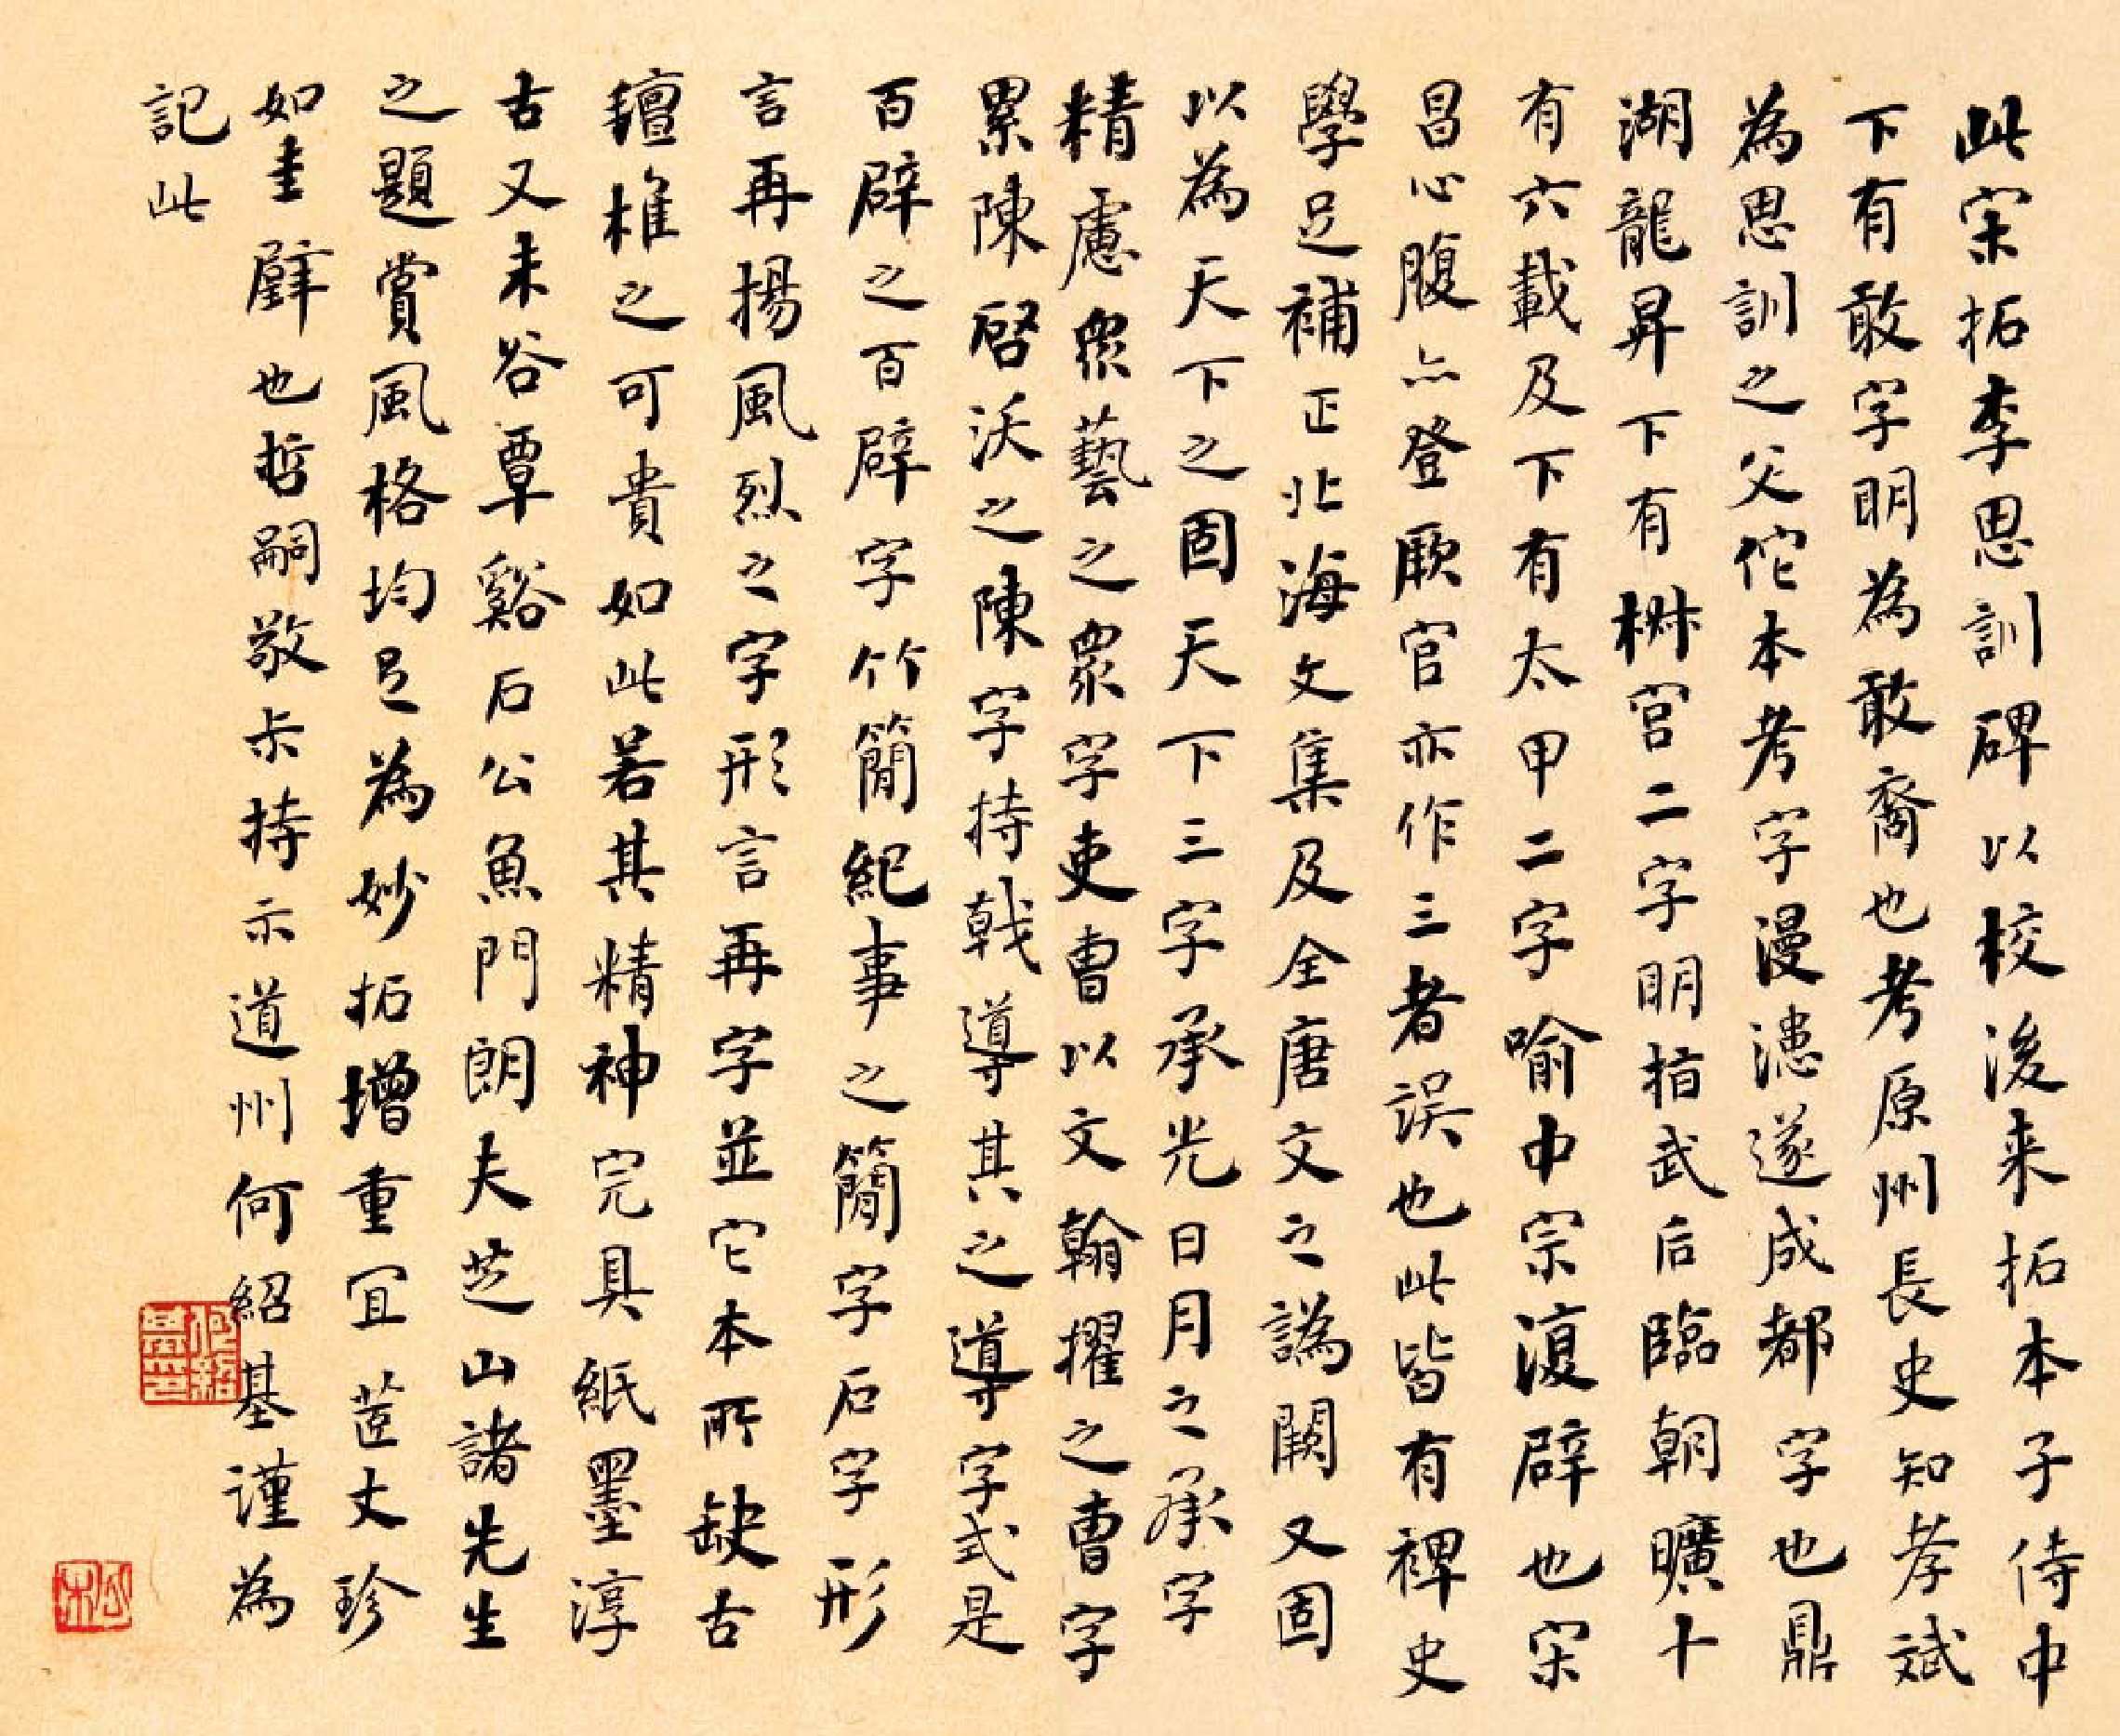 此宋拓李思訓碑以校後来拓本子侍中
下有敢字明為敢裔也考原州長史知孝斌
為思訓之父佗本考字漫漶遂成都字也鼎
湖龍昇下有椒宮二字明指武后臨朝曠十
有六載及下有太甲二字喻中宗復辟也宋
昌心腹亦登厥官亦作三者誤也此皆有裨史
學足補正北海文集及全唐文之譌闕又固
以為天下之固天下三字承光日月之承字
精慮衆藝之眾字吏曹以文翰擢之曹字
累陳啓沃之陳字持戟導其之導字式是
百辟之百辟字竹簡紀事之簡字石字形
言再揚風烈之字形言再字並它本所缺古
氊椎之可貴如此若其精神完具紙墨淳
古又未谷覃谿石公魚門朗夫芝山諸先生
之題賞風格均足為妙拓增重宜荳丈珍
如圭璧也哲嗣敬叔持示道州何紹基謹為
記此
何紹基印